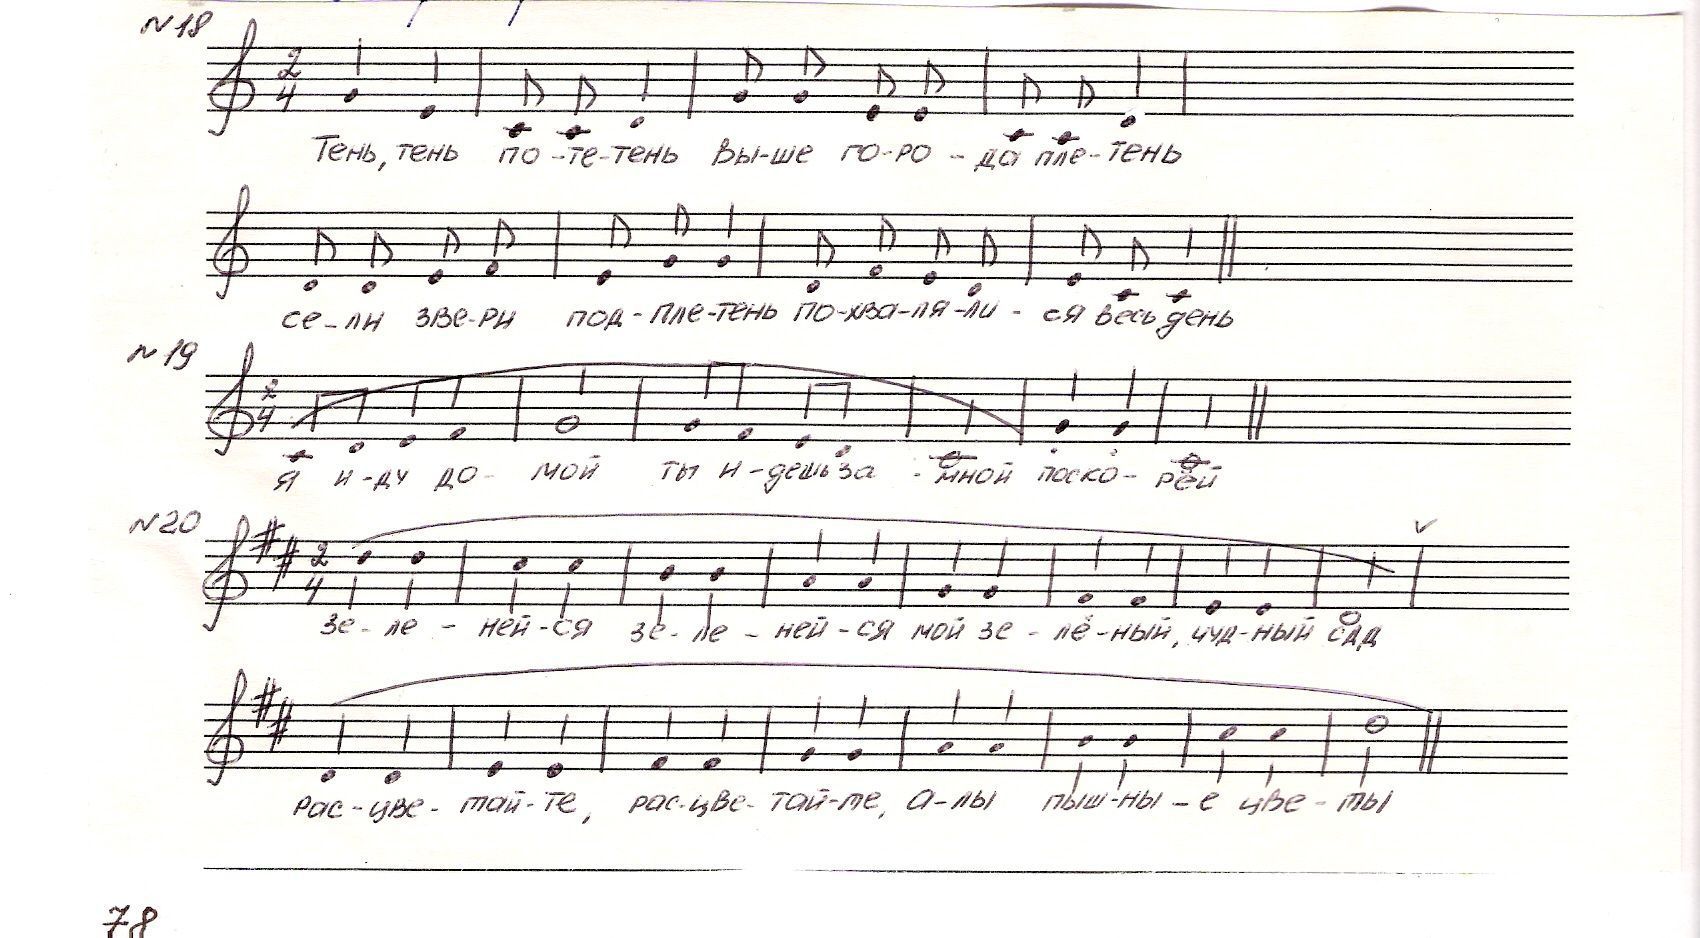 №18
2/4
Тень, тень по-те-тень Вы-ше го-ро-да пле-тень
се-ли зве-ри под-пле-тень по-хва-ля-ли-ся весь день
№19
2/4
Я и-ду до-мой ты и-дешь за-мной поско-рей
№20
2/4
Зе-ле-ней-ся зе-ле-ней-ся мой зе-лё-ный, чуд-ный сад
Рас-цве-тай-те, рас-цве-тай-те, а-лы пыш-ны-е цве-ты
78